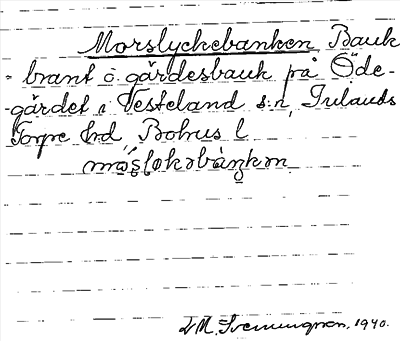 Morslyckebanken, Bauk
- brant o. gärdesbauk på Öde-
-gärdet i Vesteland s:n, Inlauds
Torpe hrd, Bohus l
L M. Svenungson, 1940.